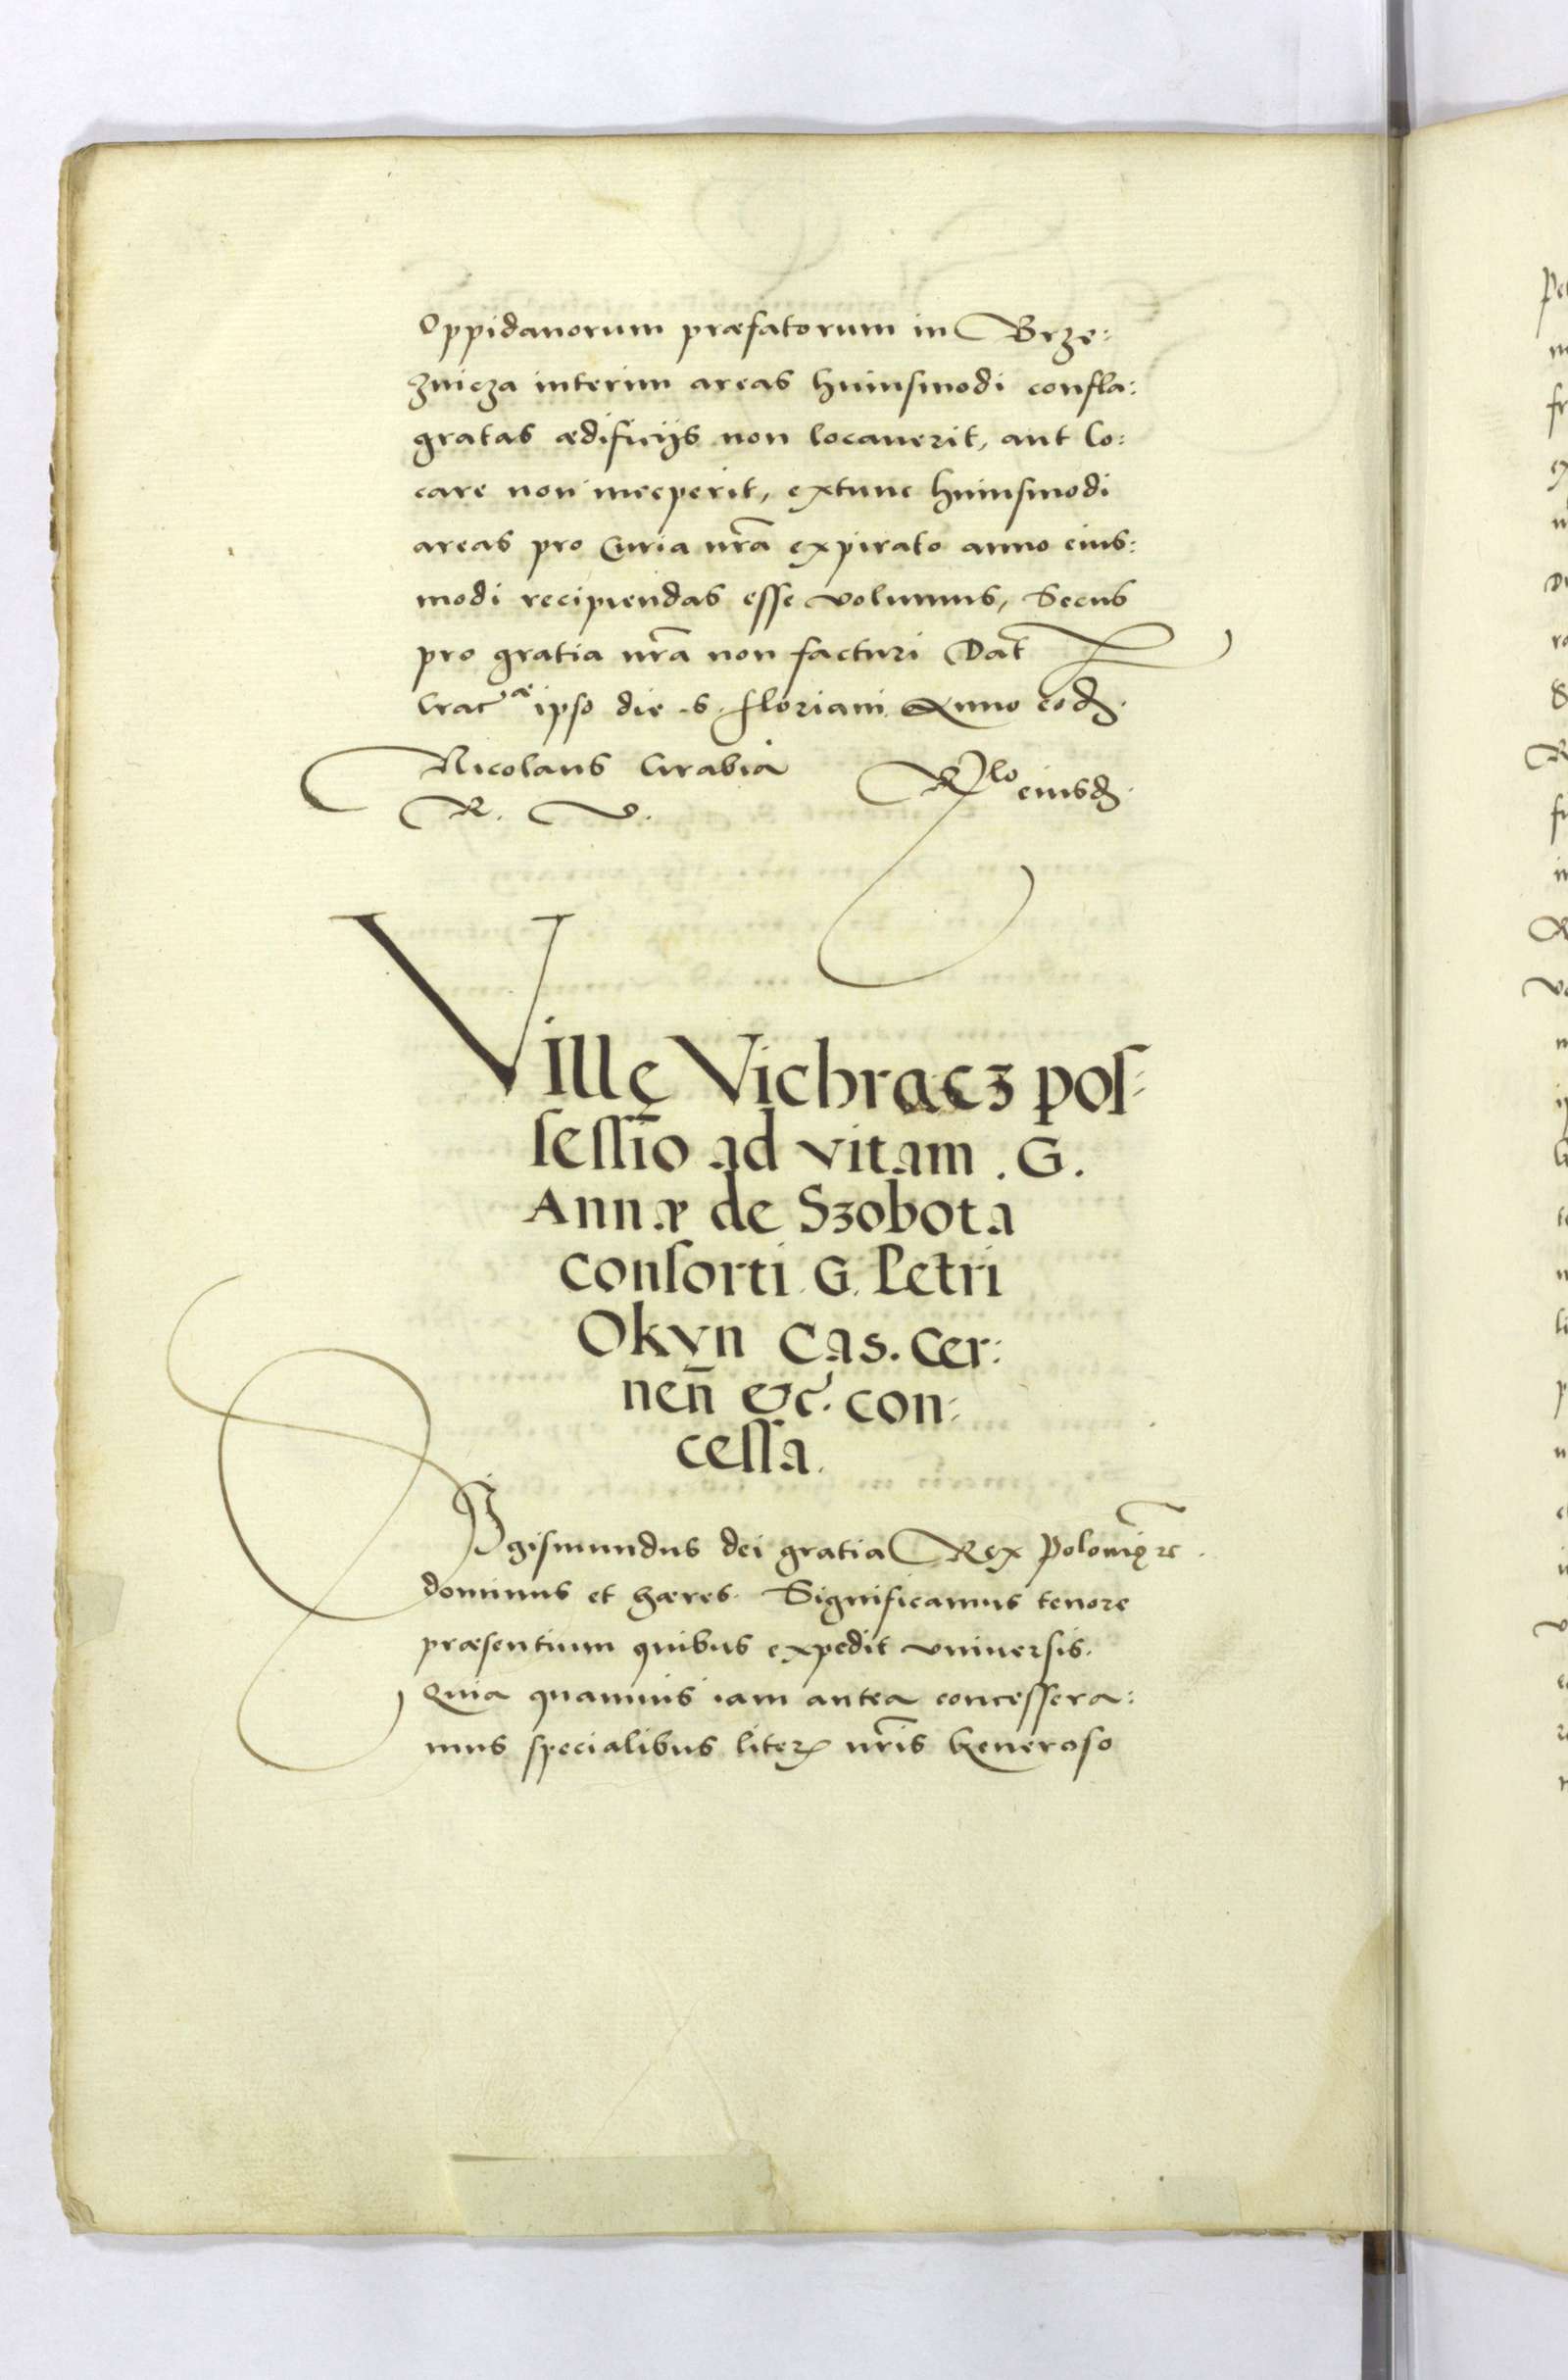 Oppidanorum præfatorum in Brze:
znicza interim areas huiusmodi confla:
gratas ædificijs non locauerit, aut lo:
care non inceperit, extunc huiusmodi
areas pro Curia nr̃a expirato anno eius:
modi recipiendas esse volumus, Secus
pro gratia nr̃a non facturi Dat̃
Crac̃æ ipso die S. floriani Anno eod̃.
Nicolaus Grabia
R. V.
Rlo eiusd̃.
Villę Vichracz pos:
sessio ad vitam . G.
Annæ de Szobota
consorti . G. Petri
Okvn Cas. Cer:
nen̄ &c. con:
cessa.
Sgismundus dei gratia Rex Polonię zc.
dominus et hæres. Significamus tenore
præsentium quibus expedit vniuersis.
Quia quamuis iam antea concessera:
mus specialibus literꝭ nr̃is Generoso